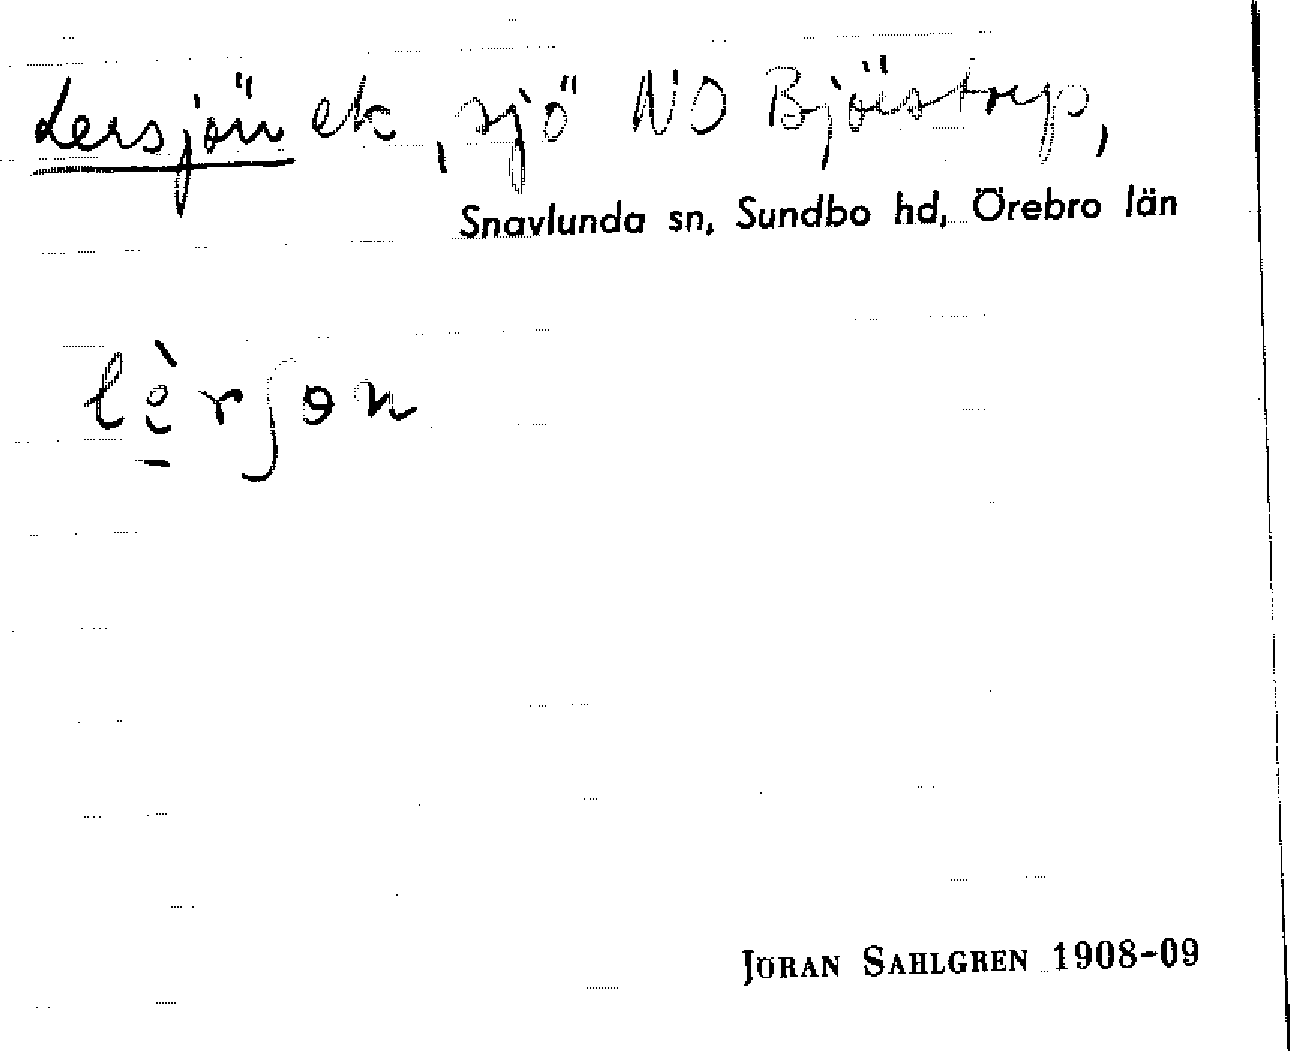 Lersjön ek, sjö NO Björstorp,
Snavlunda sn, Sundbo hd, Örebro län
lè̱rʃɘn
JÖRAN SAHLGREN 1908-09